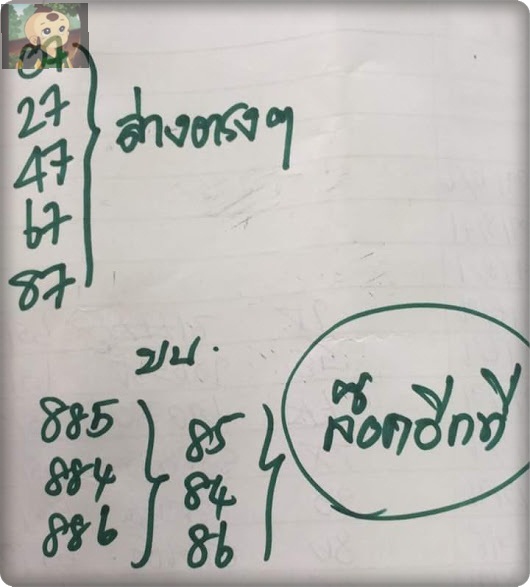 27
47 ล่างตรงๆ
67
87
บน.
885 85
884 84 ล็อคอีกที
886 86